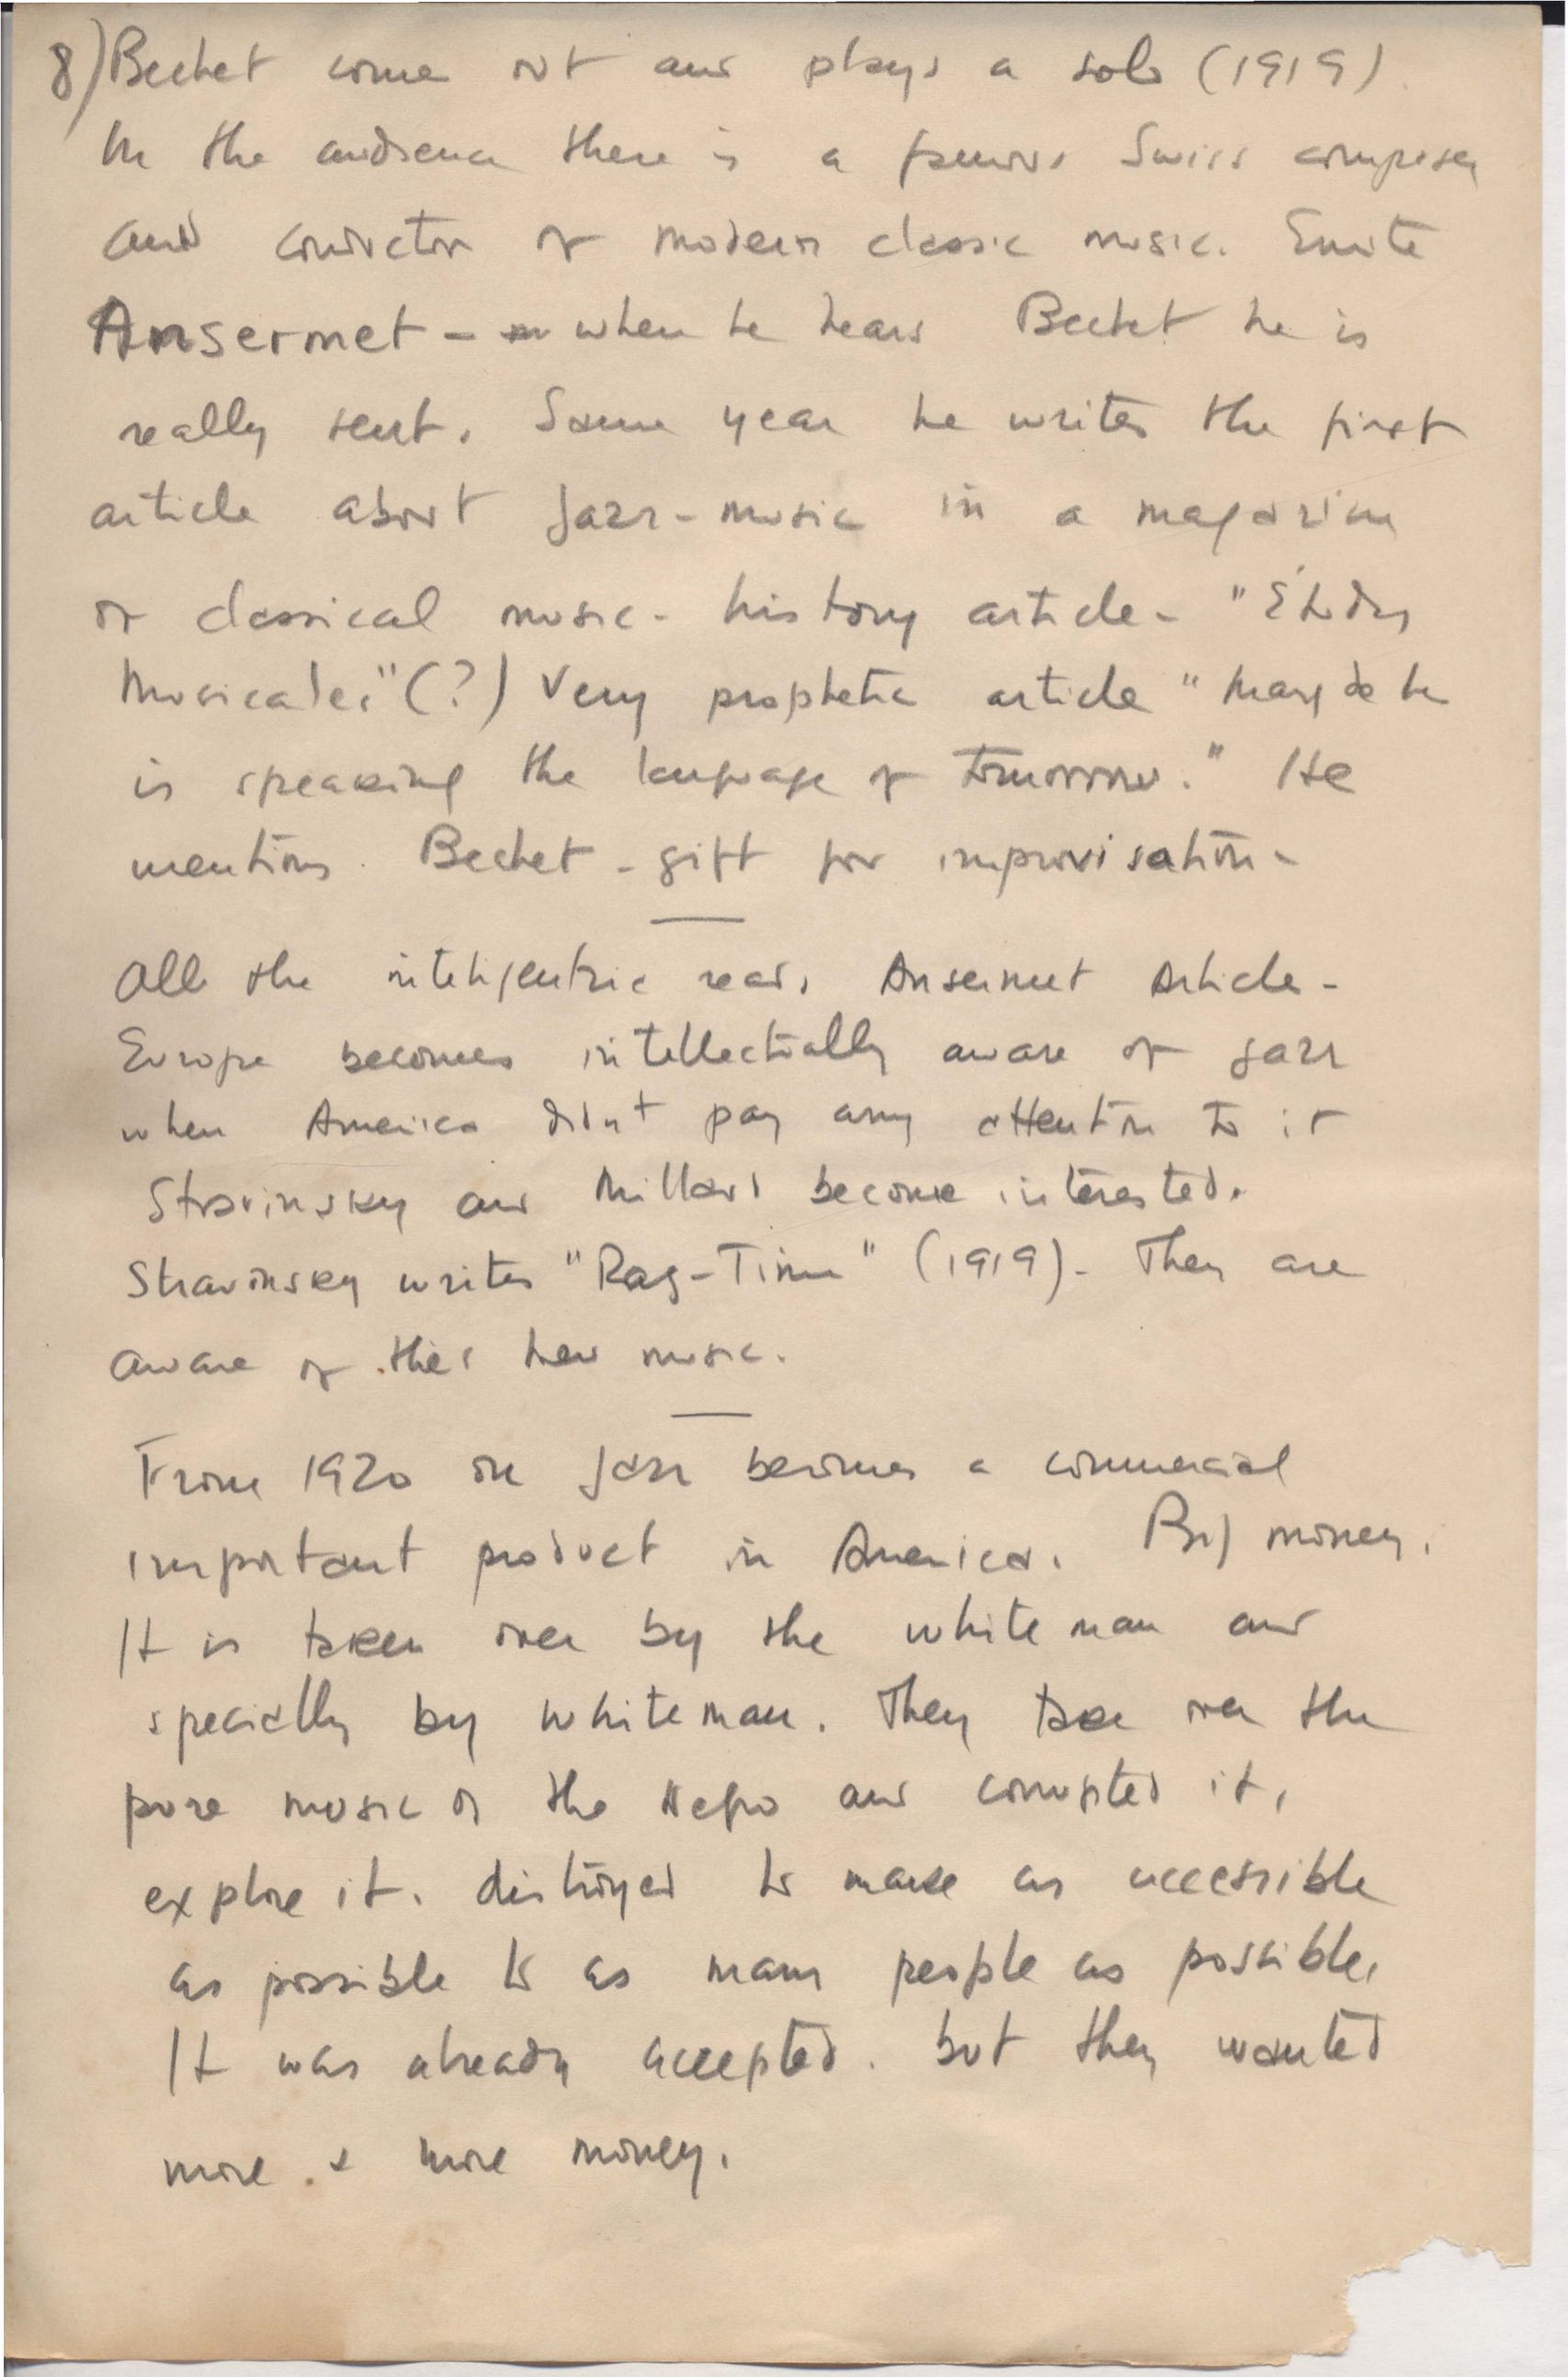 8) Bechet come out and plays a solo (1919).
In the audience there is a famous Swiss composer
and conductor of modern classic music. Ernste
Ansermet - when he hears Bechet he is
really sent. Same year he writes the first
article about Jazz-music in a magazine
of classical music - history article - "Études
Musicales" (?) Very prophetic article "maybe he
is speaking the language of tomorrow." He
mentions Bechet - gift for improvisation -
All the inteligentzie reads Ansermet Article -
Europe becomes intellectually aware of jazz
when America didn't pay any attention to it
Stravinsky and Millaud become interested.
Stravinsky writes "Rag-Time" (1919) - They are
aware of this new music.
From 1920 on Jazz becomes a commercial
important product in America. Big money.
It is taken over by the white man and
specially by Whiteman. They take over the
pure music of the Negro and corrupted it,
explore it. distroyed to make as accessible
as possible to as many people as possible.
It was already accepted. but they wanted
more & more money.